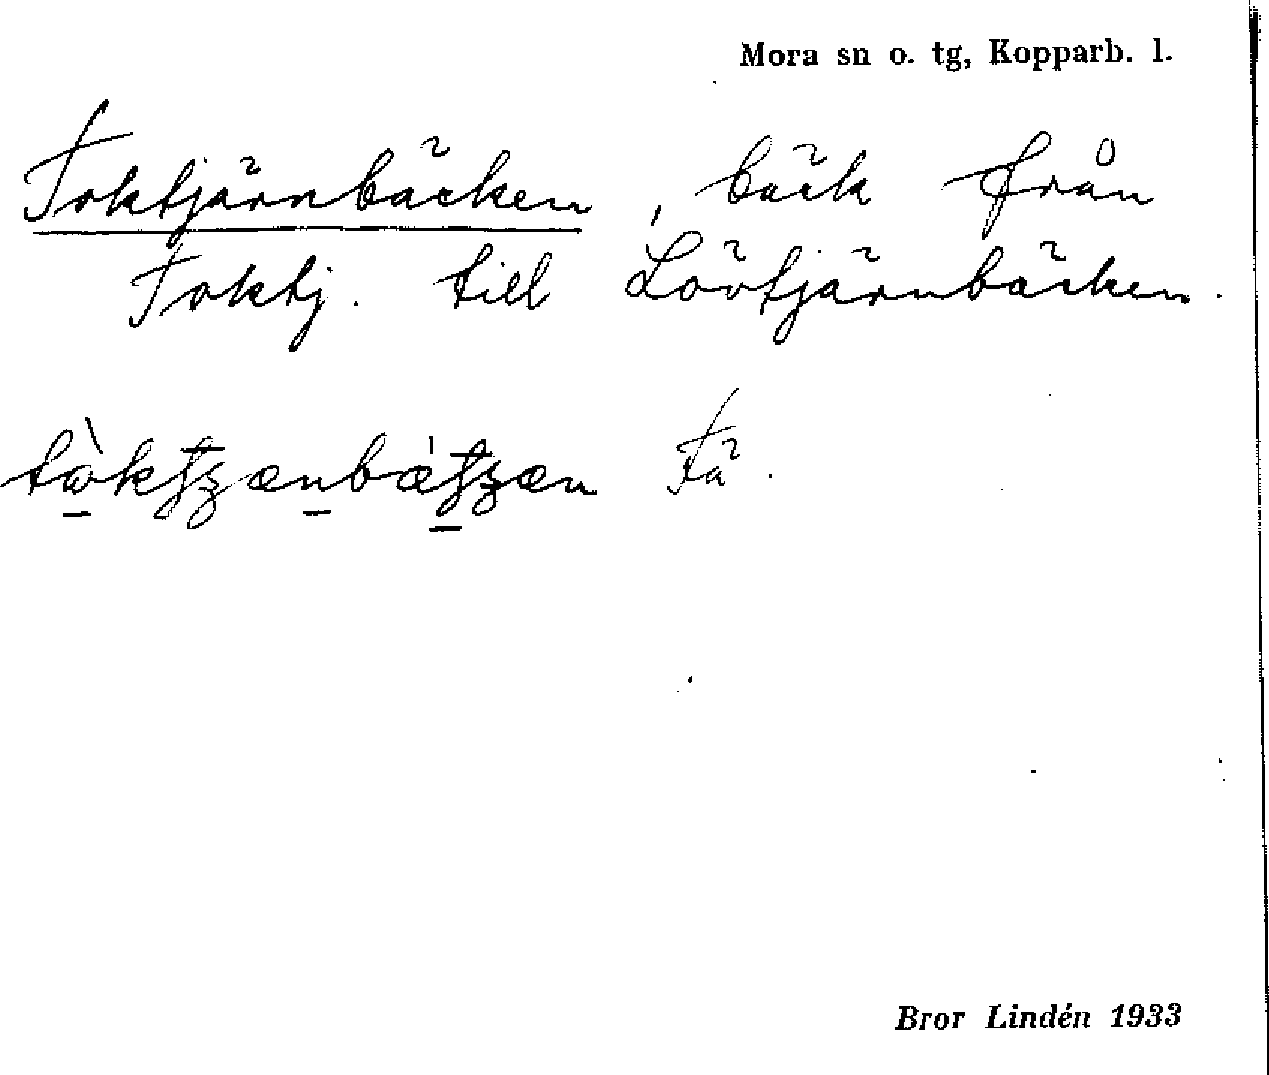 Mora sn o. tg, Kopparb. l.
Toktjärnbäcken, bäck från
Toktj. till Lövtjärnbäcken.
Fä.
Bror Lindén 1933